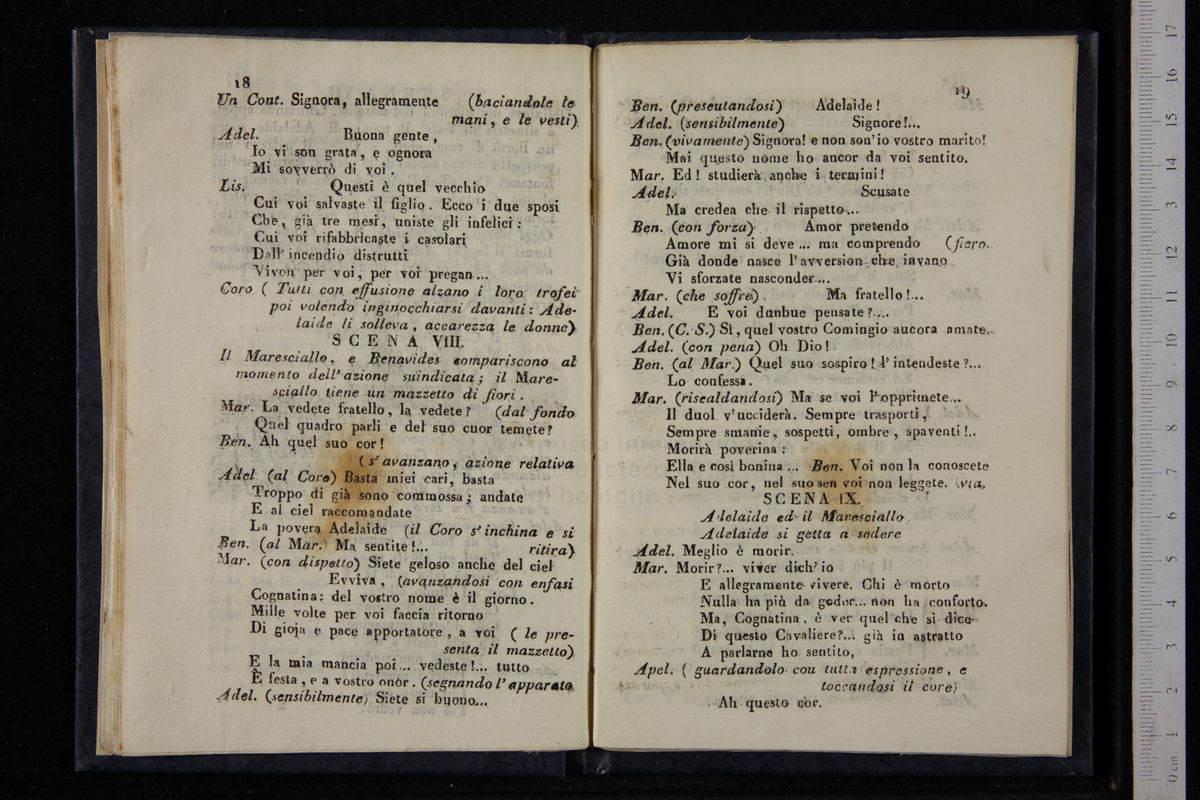 18
Un Cont. Signora, allegramente (baciandole le
mani, e le vesti)
Adel. Buona gente,
Io vi son grata, e ognora
Mi sovverrò di voi.
Lis. Questi è quel vecchio
Cui voi salvaste il figlio. Ecco i due sposi
Che, già tre mesi, uniste gli infelici:
Cui voi rifabbricaste i casolari
Dall' incendio distrutti
Vivon per voi, per voi pregan...
Coro ( Tutti con effusione alzano i loro trofei
poi volendo inginocchiarsi davanti: Ade-
laide li solleva, accarezza le donne)
SCENA VIII.
Il Maresciallo, e Benavides compariscono al
momento dell' azione suindicata; il Mare-
sciallo tiene un mazzetto di fiori.
Mar. La vedete fratello, la vedete? (dal fondo
Quel quadro parli e del suo cuor temete?
Ben. Ah quel suo cor!
(s' avanzano, azione relativa
Adel (al Coro) Basta miei cari, basta
Troppo di già sono commossa; andate
E al ciel raccomandate
La povera Adelaide (il Coro s' inchina e si
Ben. (al Mar.) Ma sentite!... ritira)
Mar. (con dispetto) Siete geloso anche del ciel
Evviva, (avanzandosi con enfasi
Cognatina: del vostro nome è il giorno.
Mille volte per voi faccia ritorno
Di gioja e pace apportatore, a voi ( le pre-
senta il mazzetto)
E la mia mancia poi... vedeste!... tutto
È festa, e a vostro onor. (segnando l' apparato
Adel. (sensibilmente) Siete si buono...
19
Ben. (preseutandosi) Adelaide!
Adel. (sensibilmente) Signore!...
Ben. (vivamente) Signora! e non son' io vostro marito!
Mai questo nome ho ancor da voi sentito.
Mar. Ed! studierà anche i termini!
Adel. Scusate
Ma credea che il rispetto...
Ben. (con forza) Amor pretendo
Amore mi si deve... ma comprendo (fiero.
Già donde nasce l' avversion che invano
Vi sforzate nasconder...
Mar. (che soffre) Ma fratello!...
Adel. E voi danbue pensate?...
Ben. (C. S.) Sì, quel vostro Comingio aucora amate.
Adel. (con pena) Oh Dio!
Ben. (al Mar.) Quel suo sospiro! l' intendeste?...
Lo confessa.
Mar. (risealdandosi) Ma se voi l' opprimete...
Il duol v' ucciderà. Sempre trasporti,
Sempre smanie, sospetti, ombre, spaventi!..
Morirà poverina:
Ella e così bonina... Ben. Voi non la conoscete
Nel suo cor, nel suo sen voi non leggete. (via,
SCENA IX.
Adelaide ed il Maresciallo.
Adelaide si getta a sedere
Adel. Meglio è morir.
Mar. Morir?... viver dich' io
E allegramente vivere. Chi è morto
Nulla ha più da goder... non ha conforto.
Ma, Cognatina, è ver quel che si dice
Di questo Cavaliere?... già in astratto
A parlarne ho sentito,
Apel. ( guardandolo cou tutta espressione, e
toccandosi il core)
Ah questo cor.